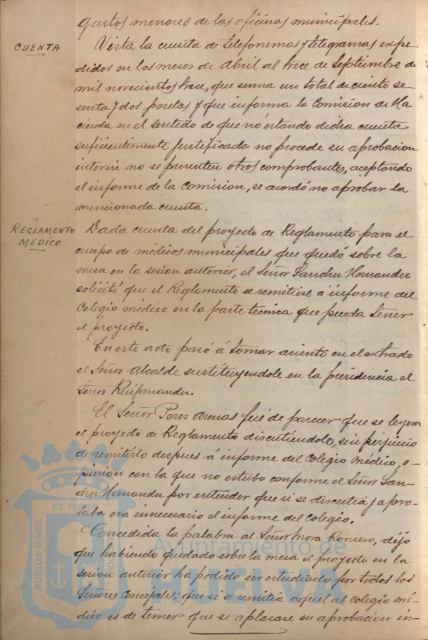 gastos menores de las oficinas municipales.
CUENTA
Vista la cuenta de telefonemas y telegramas expe-
didos en los meses de Abril al trece de Septiembre de
mil novecientos trece, que suma un total de ciento se-
senta y dos pesetas y que informa la Comision de Ha
cienda en el sentido de que no estando dicha cuenta
suficientemente justificada no procede su aprobacion
interin no se presenten otros comprobantes, aceptando
el informe de la Comision, se acordó no aprobar la
mencionada cuenta.
REGLAMENTO
MEDICO
Dada cuenta del proyecto de Reglamento para el
cuerpo de médicos municipales que quedó sobre la
mesa en la sesion anterior, el Señor Sanchez Hernandez
solicitó que el Reglamento se remitiese á informe del
Colegio médico en la parte técnica que pueda tener
el proyecto.
En este acto pasó á tomar asiento en el estrado
el Señor Alcalde sustituyendole en la presidencia el
Señor Ruifernandez.
El Señor Perez Arenas fué de parecer que se leyera
el proyecto de Reglamento discutiendolo, sin perjuicio
de remitirlo despues á informe del Colegio médico, o-
pinion con la que no estubo conforme el Señor San-
chez Hernandez por entender que si se discutia y apro-
baba era innecesario el informe del Colegio.
Concedida la palabra al Señor Mora Romero, dijo
que habiendo quedado sobre la mesa el proyecto en la
sesion anterior ha podido ser estudiado por todos los
Señores Concejales; que si se remitia aquel al colegio mé-
dico es de temer que se aplazase su aprobacion in-
PORTUS MAGNIS
ET TER
Ayuntamiento de